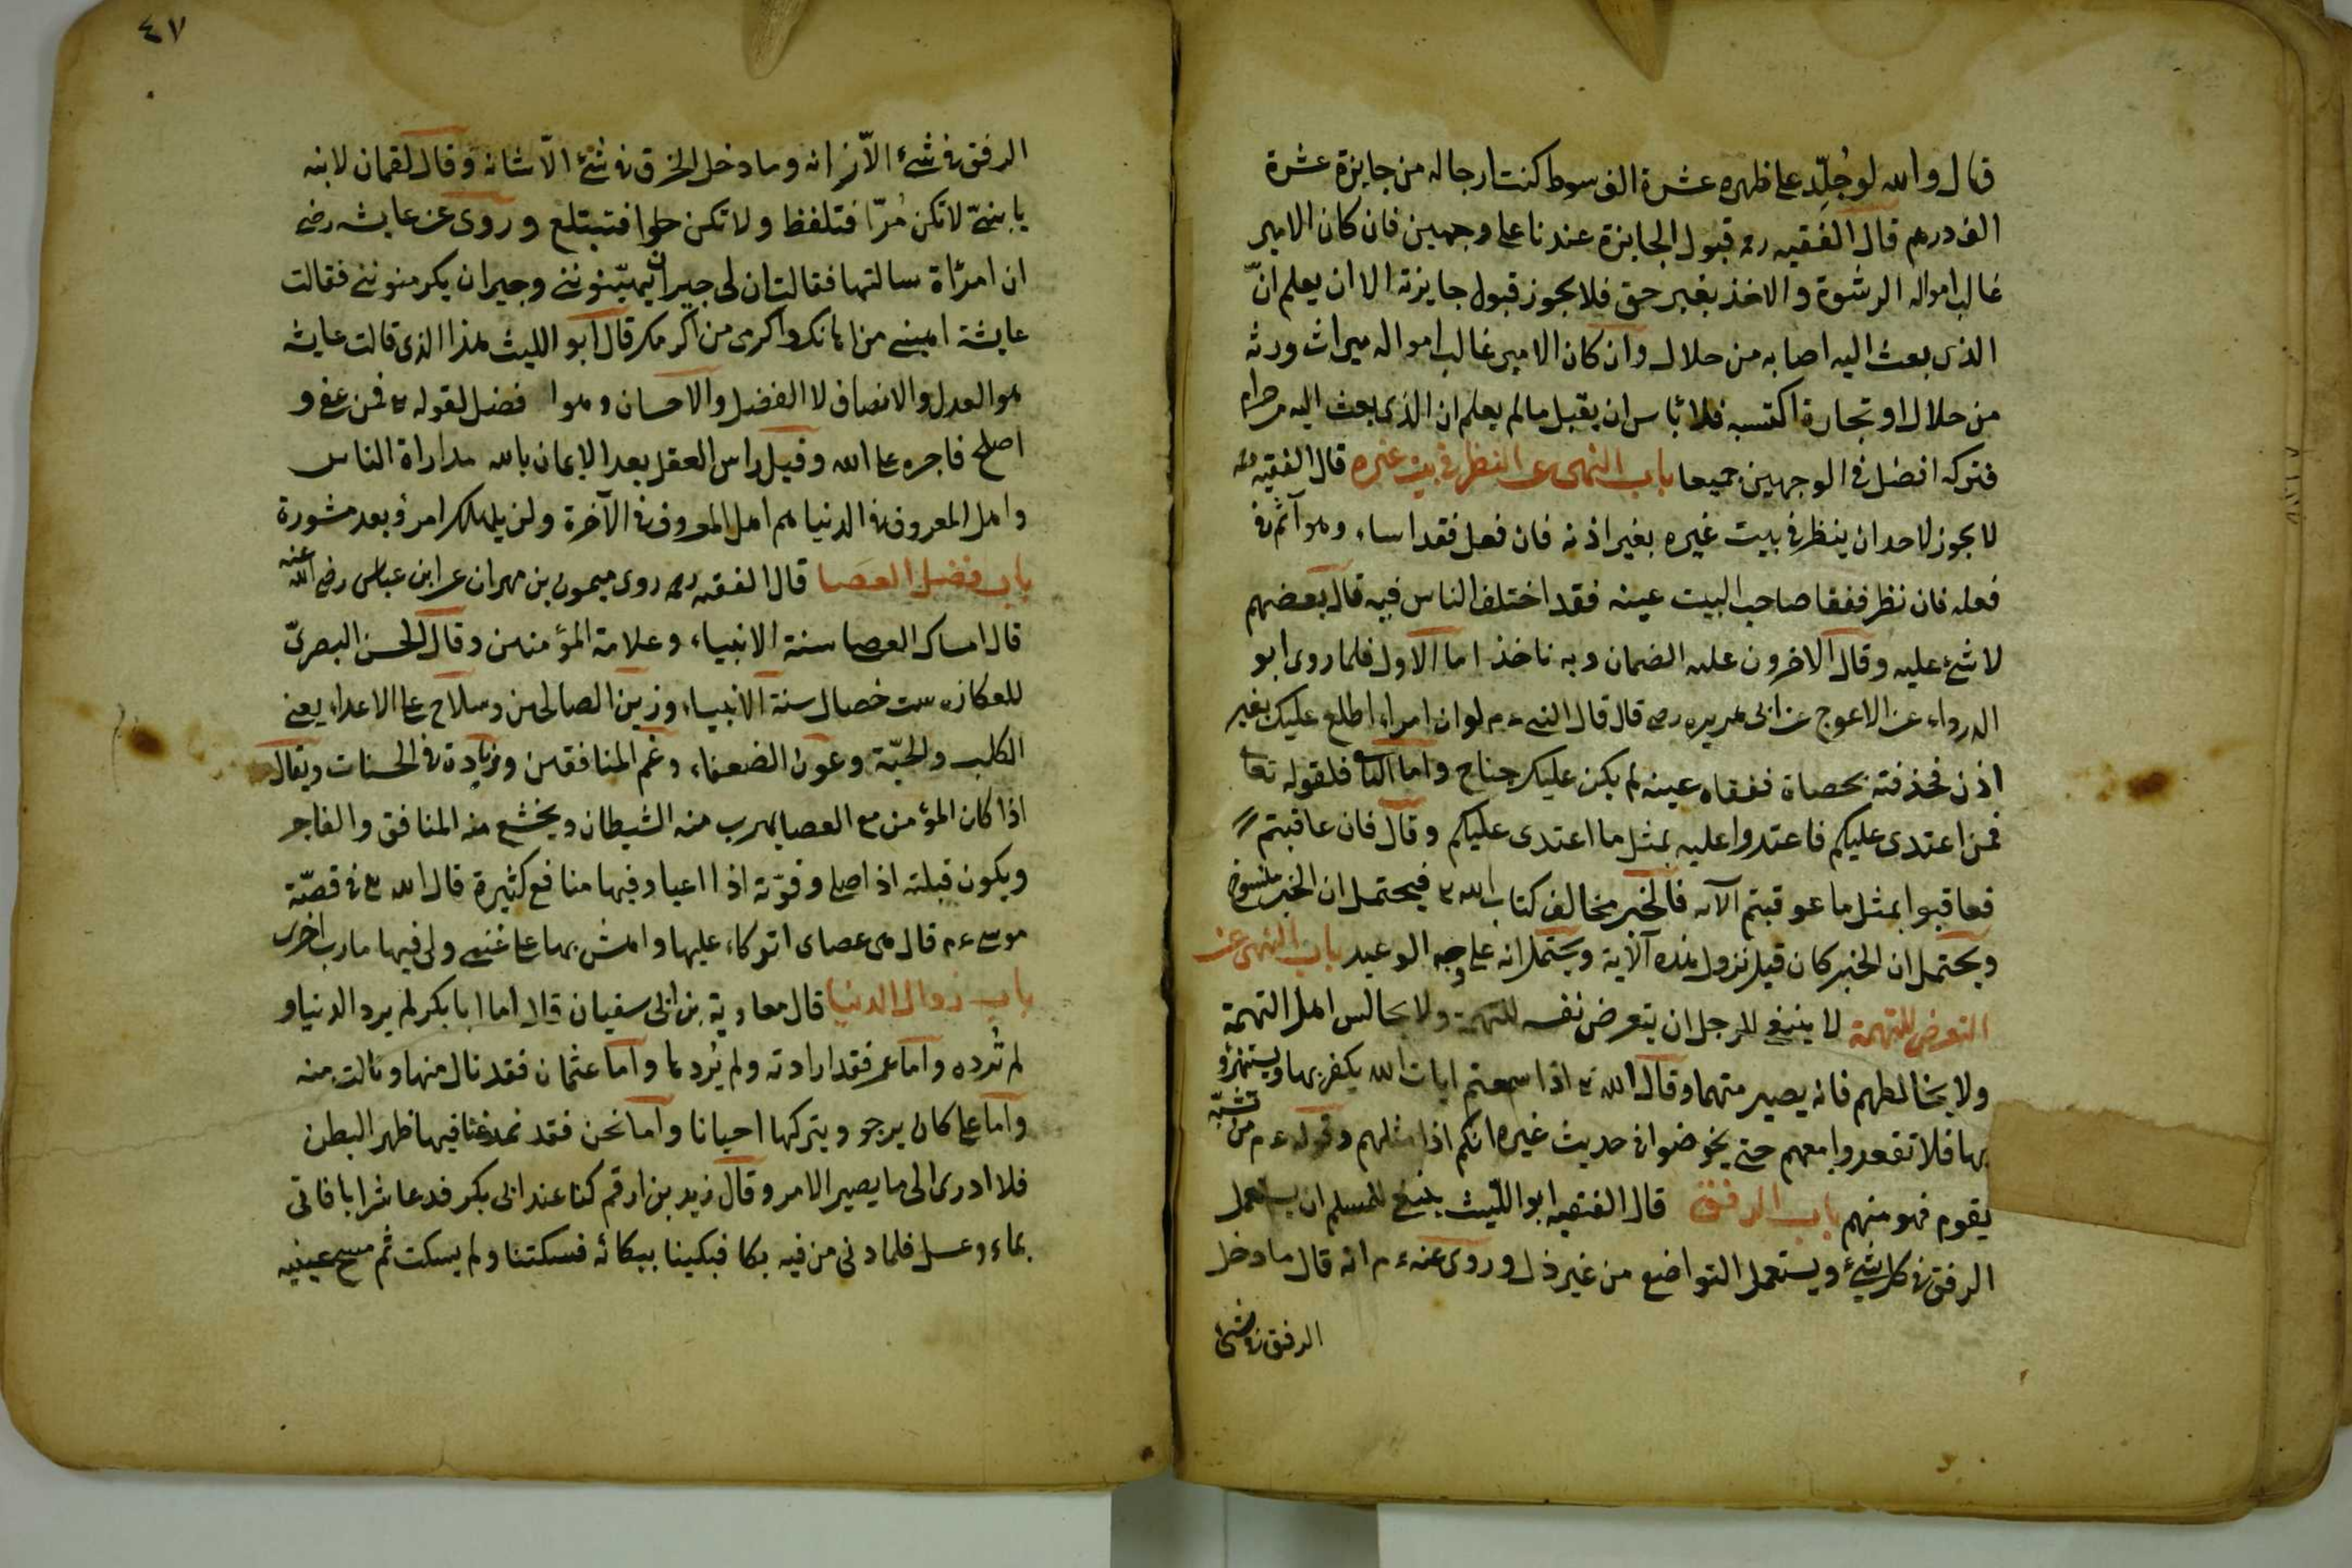 قال والله لو جُلِّد على ظهره عشرة الف سوط كنت ارجا له من جايزة عشرة
الف درهم قال الفقيه رحمه قبول الجايزة عندنا على وجهين فان كان الامير
غالب امواله الرشوة والاخذ بغير حق فلا يجوز قبول جايزته الا ان يعلم انّ
الذى بعث اليه اصابه من حلال وان كان الامير غالب امواله ميراث ورثه
من حلال او تجارة اكتسبه فلا بٔاس ان يقبل مالم يعلم ان الذى بعث اليه من حرام
فتركه افضل فى الوجهين جميعا باب النهى عن النظر فى بيت غيره قال الفقيه
لا يجوز لاحد ان ينظر فى بيت غيره بغير اذنه فان فعل فقد اساء وهو آثم فى
فعله فان نظر ففقا صاحب البيت عينه فقد اختلف الناس فيه قال بعضهم
لا شئ عليه وقال الاخرون عليه الضمان وبه ناخذ اما الاول فلما روى ابو
الدرداء عن الاعوج عن ابى هريره رضى قال قال النبى ءم لو ان امراء اطلع عليك بغير
اذن فحذفته بحصاة ففقاه عينه لم يكن عليك جناح واما الثانى فلقوله تعا
فمن اعتدى عليكم فاعتدوا عليه بمثل ما اعتدى عليكم وقال فان عاقبتم
فعاقبوا بمثل ما عوقبتم الآيه فالخبر مخالف كتاب الله تع فيحتمل ان الخبر منسوخ
ويحتمل ان الخبر كان قبل نزول هذه الآية ويحتمل انه على وجه الوعيد باب النهى عن
التعرض للتهمة لا ينبغى للرجل ان يتعرض نفسه للتهمة ولا يجالس اهل التهمة
ولا يخالطهم فانه يصير متهما وقال الله تع اذا سمعتم ايات الله يكفر بها ويستهزؤ
بها فلا تقعدوا معهم حتى يخوضوا فى حديث غيره انكم اذا مثلهم وقوله ءم من تشبّه
بقوم فهو منهم باب الرفق قال الفقيه ابو اللّيث ينبغى للمسلم ان يستعمل
الرفق فى كل شئ ويستعمل التواضع من غير ذل وروى عنه ءم انه قال ما دخل
الرفق فى شئ
٤٧
الرفق فى شئ الاّ زانه وما دخل الخرق فى شئ الاّ شانه وقال لقمان لابنه
يا بنىّ لا تكن مُرّا فتلفظ ولا تكن حلوا فتبتلع وروى عن عايشه رضى
ان امرٔاة سالتها فقالت ان لى جيران يهيّنوننى وجيران يكرمنوننى فقالت
عايشة اهينى من اهانك واكرمى من اكرمك قال ابو الليث هذا الذى قالت عايشه
هو العدل والانصاف لا الفضل والاحسان وهوا فضل لقوله تع فمن عفو و
اصلح فاجره على الله وقيل راس العقل بعد الايمان بالله مداراة الناس
واهل المعروف فى الدنيا هم اهل المعروف فى الآخرة ولن يهلك امرؤ بعد مشورة
باب فضل العصا قال الفقيه رحمه روى ميمون بن مهران عن ابن عباس رضى الله عنه
قال امساك العصا سنة الانبياء وعلامة المؤمنين وقال الحسن البصرىّ
للعكازه ست خصال سنة الانبياء وزين الصالحين وسلاح على الاعداء يعنى
الكلب والحيّة وعون الضعفاء وغم المنافقين وزيادة فى الحسنات ويقال
اذا كان المؤمن مع العصا يهرب منه الشيطان ويخشع منه المنافق والفاجر
ويكون قبلته اذا صلى وقوّته اذا اعيا وفيها منافع كثيرة قال الله تع فى قصّة
موسى ءم قال هى عصاى اتوكاء عليها واهش بها على غنمى ولى فيها مارب اخرى
باب زوال الدنيا قال معاوية بن ابى سفيان قال اما ابا بكر لم يرد الدنيا و
لم تُرده واما عمر فقد ارادته ولم يُردها واما عثمان فقد نال منها ونالت منه
واما على كان يرجو ويتركها احيانا واما نحن فقد تمرغنا فيها ظهر البطن
فلا ادرى الى ما يصير الامر وقال زيد بن ارقم كنا عند ابى بكر فدعا شرابا فاتى
بماء وعسل فلما دنى من فيه بكا فبكينا ببكائه فسكتنا ولم يسكت ثم مسح عينيه